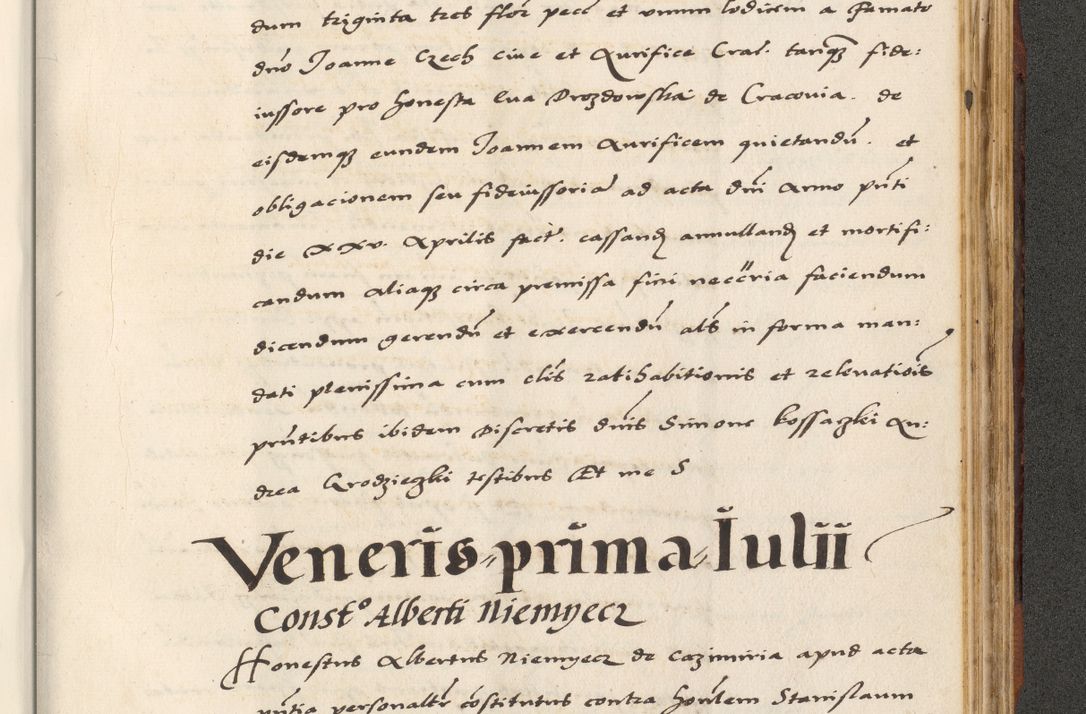 dum triginta tres flor pecc et unum lodicem a Famato
dno Joanne Czech cive et Aurifice Crac. tanqz fide:
iussore pro honesta Eva Drozdowska de Cracovia. de
eisdemqz eundem Joannem Aurificem quietandu. et
obligacionem seu fideiussoria ad acta dni Anno pnti
die XXv. Aprilis fact. cassandz annullandz et mortifi:
candum Aliaqz circa premissa fini neccria faciendum
dicendum gerendu et exercendu als in forma man:
dati plenissima cum clis ratihabitionis et relevatiois
pntibus ibidem Discretis dnis Simone Kossaczki An:
drea Grodzieczki testibus Et me S
Veneris prima Iulii
Const.o Alberti Niemyecz
Honestus Albertus Niemyecz de Cazimiria apud acta
pntia personaltr costitutus contra honlem Stanislaum